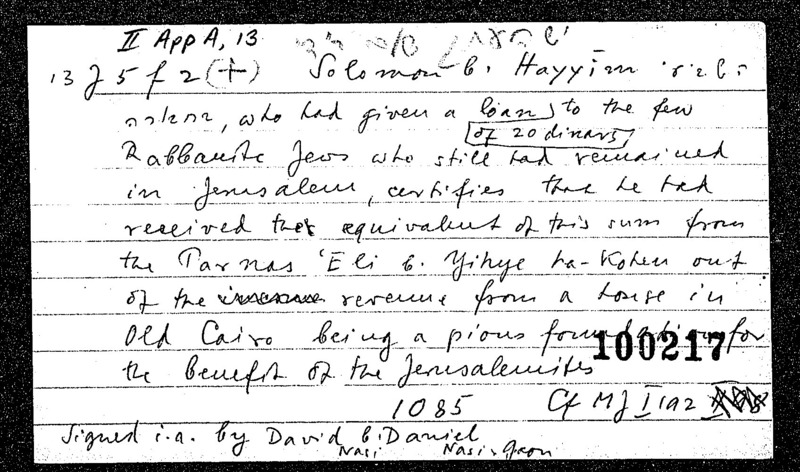 II App A, 13
13 J 5 f 2 (+) Solomon b. Hayyim
, who had given a loan to the few
of 20 dinars
Rabbanite Jews who still had remained
in Jerusalem, certifies that he had
received the equivalent of this sum from
the Parnas 'Eli b. Yihye ha-Kohen out
of the revenue from a house in
Old Cairo being a pious foundation for
100217
the benefit of the Jerusalemites
1085 Cf MJ I 192
Signed i.a. by David b. Daniel
Nasi Nasi + Gaon